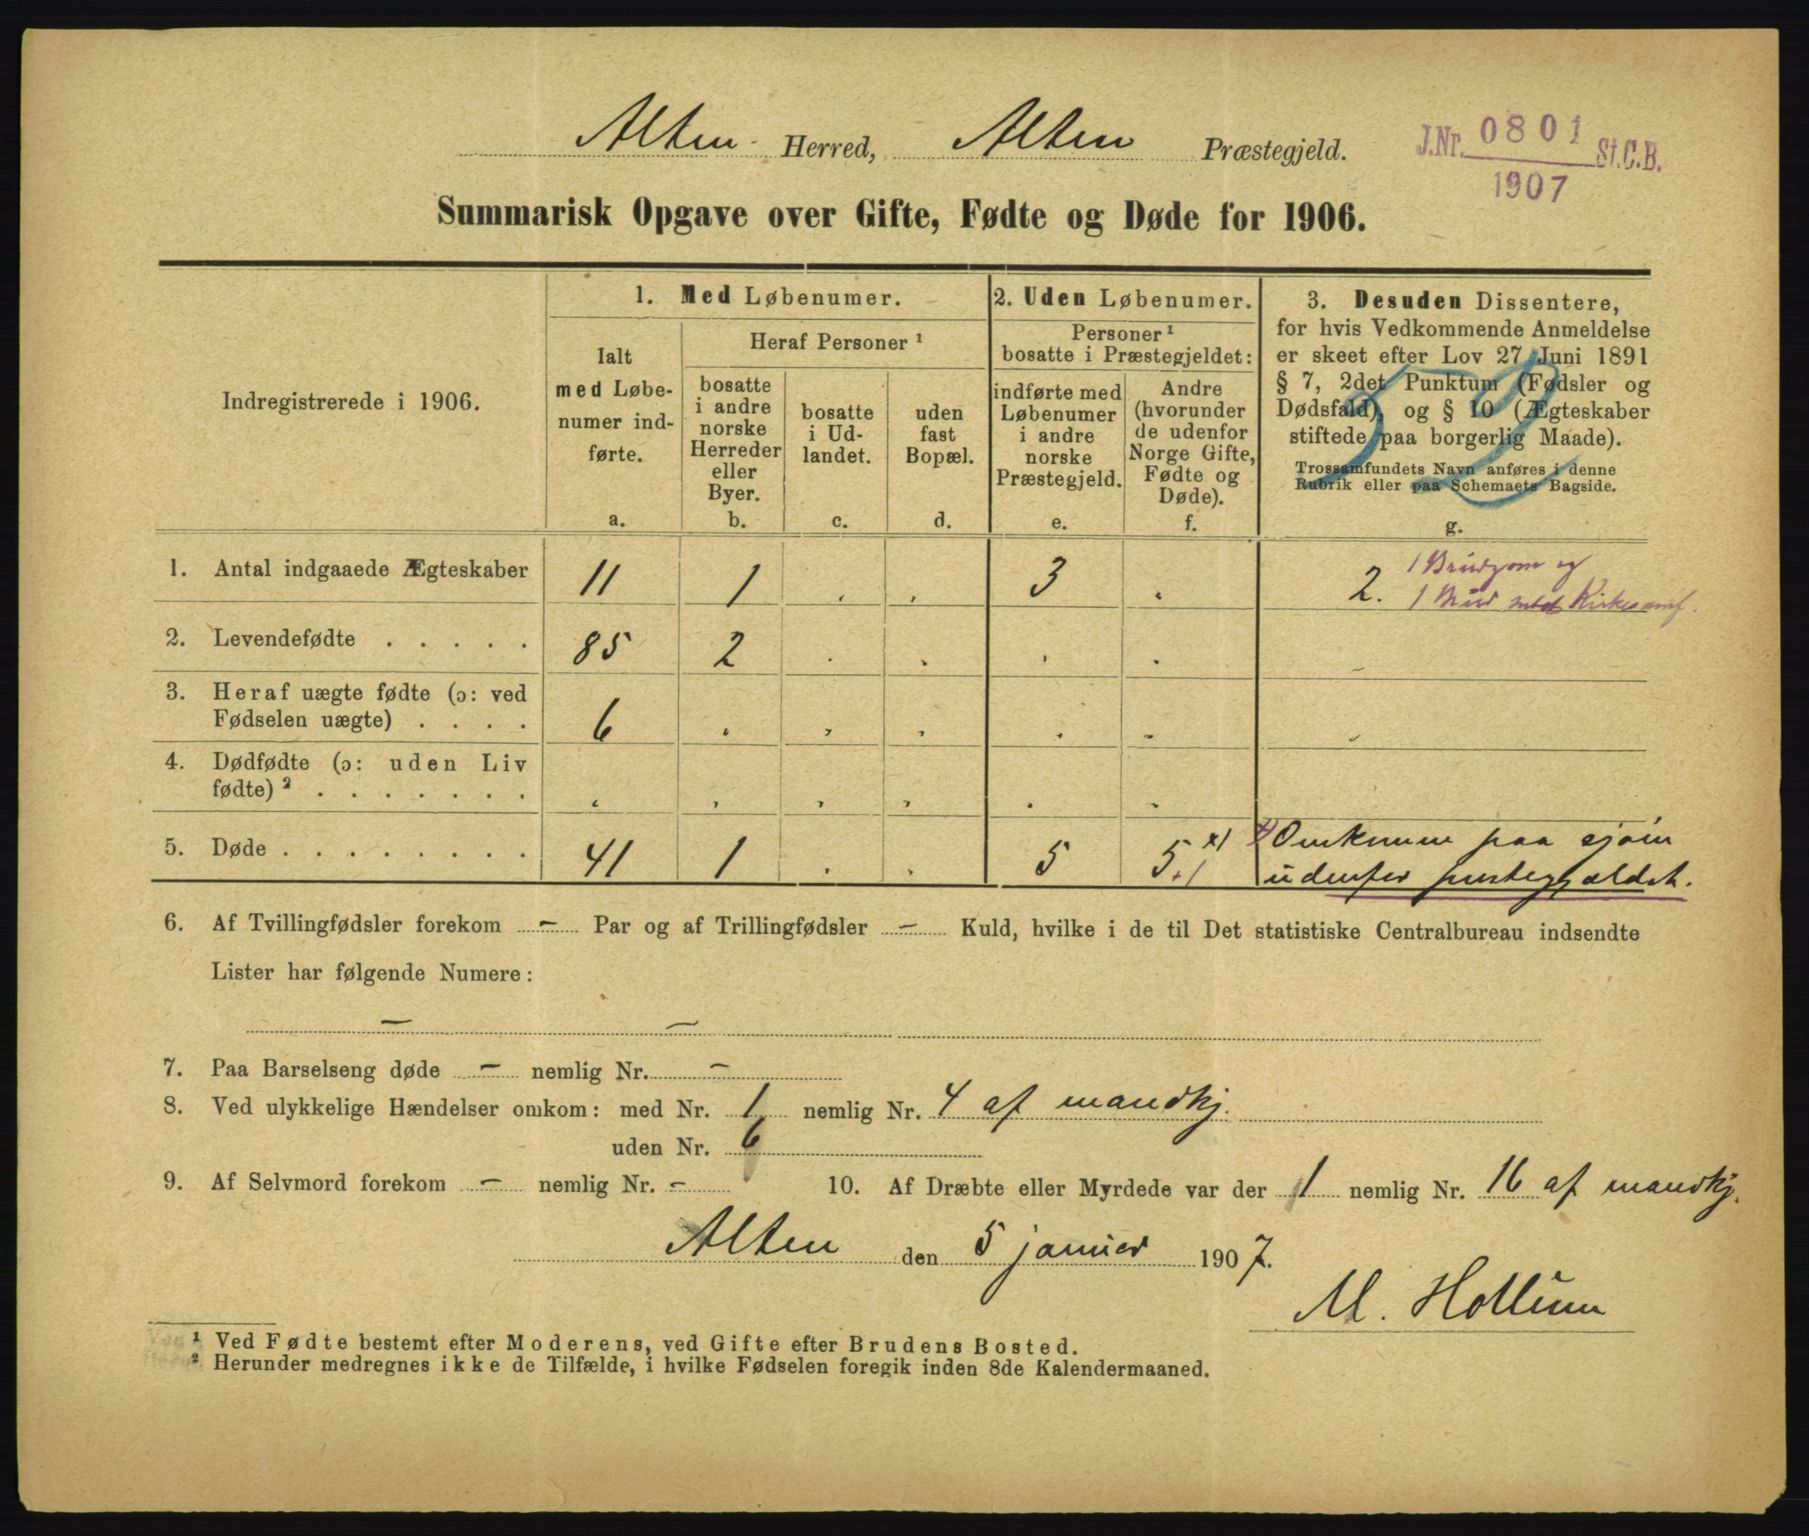 Alten Herred, Alten Præstegjeld.
J.Nr. 0801 St.C.B.
1907
Summarisk Opgave over Gifte, Fødte og Døde for 1906.
Indregistrerede i 1906.
1. Med Løbenumer.
Ialt
med Løbe-
numer ind-
førte.
a.
Heraf Personer ¹
bosatte
i andre
norske
Herreder
eller
Byer.
b.
bosatte
i Ud-
landet.
c.
uden
fast
Bopæl.
d.
2. Uden Løbenumer.
Personer ¹
bosatte i Præstegjeldet:
indførte med
Løbenumer
i andre
norske
Præstegjeld.
e.
Andre
(hvorunder
de udenfor
Norge Gifte,
Fødte og
Døde).
f.
3. Desuden Dissentere,
for hvis Vedkommende Anmeldelse
er skeet efter Lov 27 Juni 1891
§ 7, 2det Punktum (Fødsler og
Dødsfald), og § 10 (Ægteskaber
stiftede paa borgerlig Maade).
Trossamfundets Navn anføres i denne
Rubrik eller paa Schemaets Bagside.
g.
1. Antal indgaaede Ægteskaber 11 1 . . 3 . 2. 1 Brudgom og
1 Brud med Kirkesamf.
2. Levendefødte . . . . . 85 2 . . . . -
3. Heraf uægte fødte (ɔ: ved
Fødselen uægte) . . . . 6 . . . . . -
4. Dødfødte (ɔ: uden Liv
fødte) ² . . . . . . . . . . . . .
5. Døde . . . . . . . . 41 1 . . 5 5 x) +1 x) Omkomne paa sjøen
udenfor prestegjældet.
6. Af Tvillingfødsler forekom - Par og af Trillingfødsler - Kuld, hvilke i de til Det statistiske Centralbureau indsendte
Lister har følgende Numere:
- -
7. Paa Barselseng døde - nemlig Nr. -
8. Ved ulykkelige Hændelser omkom: med Nr. 1 nemlig Nr. 4 af mandkj.
uden Nr. 6
9. Af Selvmord forekom - nemlig Nr. - 10. Af Dræbte eller Myrdede var der 1 nemlig Nr. 16 af mandkj.
Alten den 5 januar 1907.
M.
¹ Ved Fødte bestemt efter Moderens, ved Gifte efter Brudens Bosted.
² Herunder medregnes ikke de Tilfælde, i hvilke Fødselen foregik inden 8de Kalendermaaned.